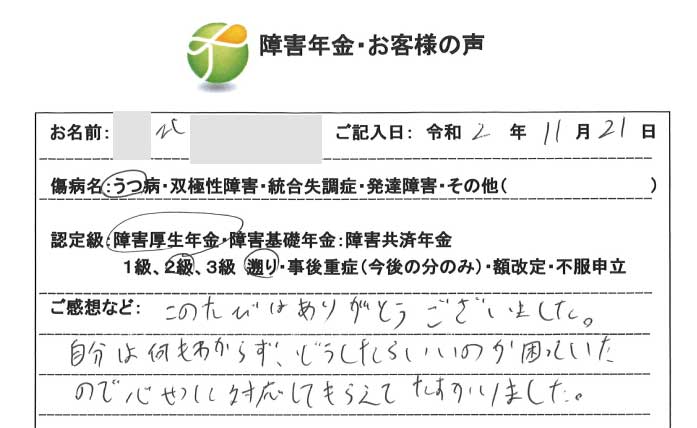 障害年金・お客様の声
お名前: ご記入日: 令和 2 年 11 月 21 日
傷病名:うつ病・双極性障害・統合失調症・発達障害・その他( )
認定級:障害厚生年金・障害基礎年金:障害共済年金
1級、2級、3級 遡り・事後重症(今後の分のみ)・額改定・不服申立
ご感想など: このたびはありがとうございました。
自分は何もわからず、どうしたらいいのか困っていた
ので心せつに対応してもらえてたすかりました。